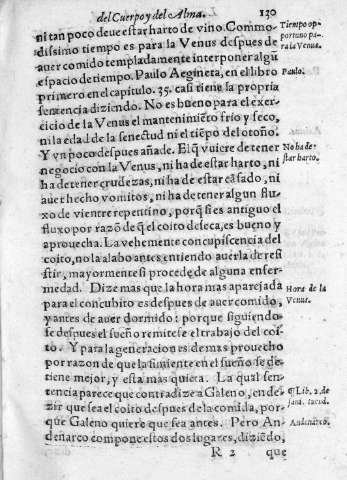 del Cuerpo y del Alma. 130
ni tan poco deue estar harto de vino. Commo-
dissimo tiempo es para la Venus despues de
auer comido templadamente interponer algũ
espacio de tiempo. Paulo Aegineta, en el libro
primero en el capitulo. 35. casi tiene la propria
sentencia diziendo. No es bueno para el exer-
cicio de la Venus el mantenimiẽto frio y seco,
ni la edad de la senectud ni el tiẽpo del otoño.
Y vn poco despues añade. El q̃ vuiere de tener
negocio con la Venus, ni ha de estar harto, ni
ha de tener crudezas, ni ha de estar cãsado, ni
auer hecho vomitos, ni ha de tener algun flu-
xo de vientre repentino, porq̃ si es antiguo el
fluxo por razõ de q̃ el coito deseca, es bueno y
aprouecha. La vehemente concupiscencia del
coito, no la alabo antes entiendo auerla de resi
stir, mayormente si procede de alguna enfer-
medad. Dize mas que la hora mas aparejada
para el concubito es despues de auer comido,
y antes de auer dormido: porque siguiendo-
se despues el sueño remitese el trabajo del coi-
to. Y para la generacion es de mas prouecho
por razon de que la simiente en el sueño se de-
tiene mejor, y esta mas quieta. La qual sen-
tencia parece que contradize a Galeno, en de-
zir que sea el coito despues de la comida, por-
que Galeno quiere que sea antes. Pero An-
denarco compone estos dos lugares, diziẽdo,
R 2 que
Tiempo op-
portuno pa-
ra la Venus.
Paulo.
No ha de
star harto.
Hora de la
Venus.
¶ Lib. 2. de
sand. tuend.
Andenarco.